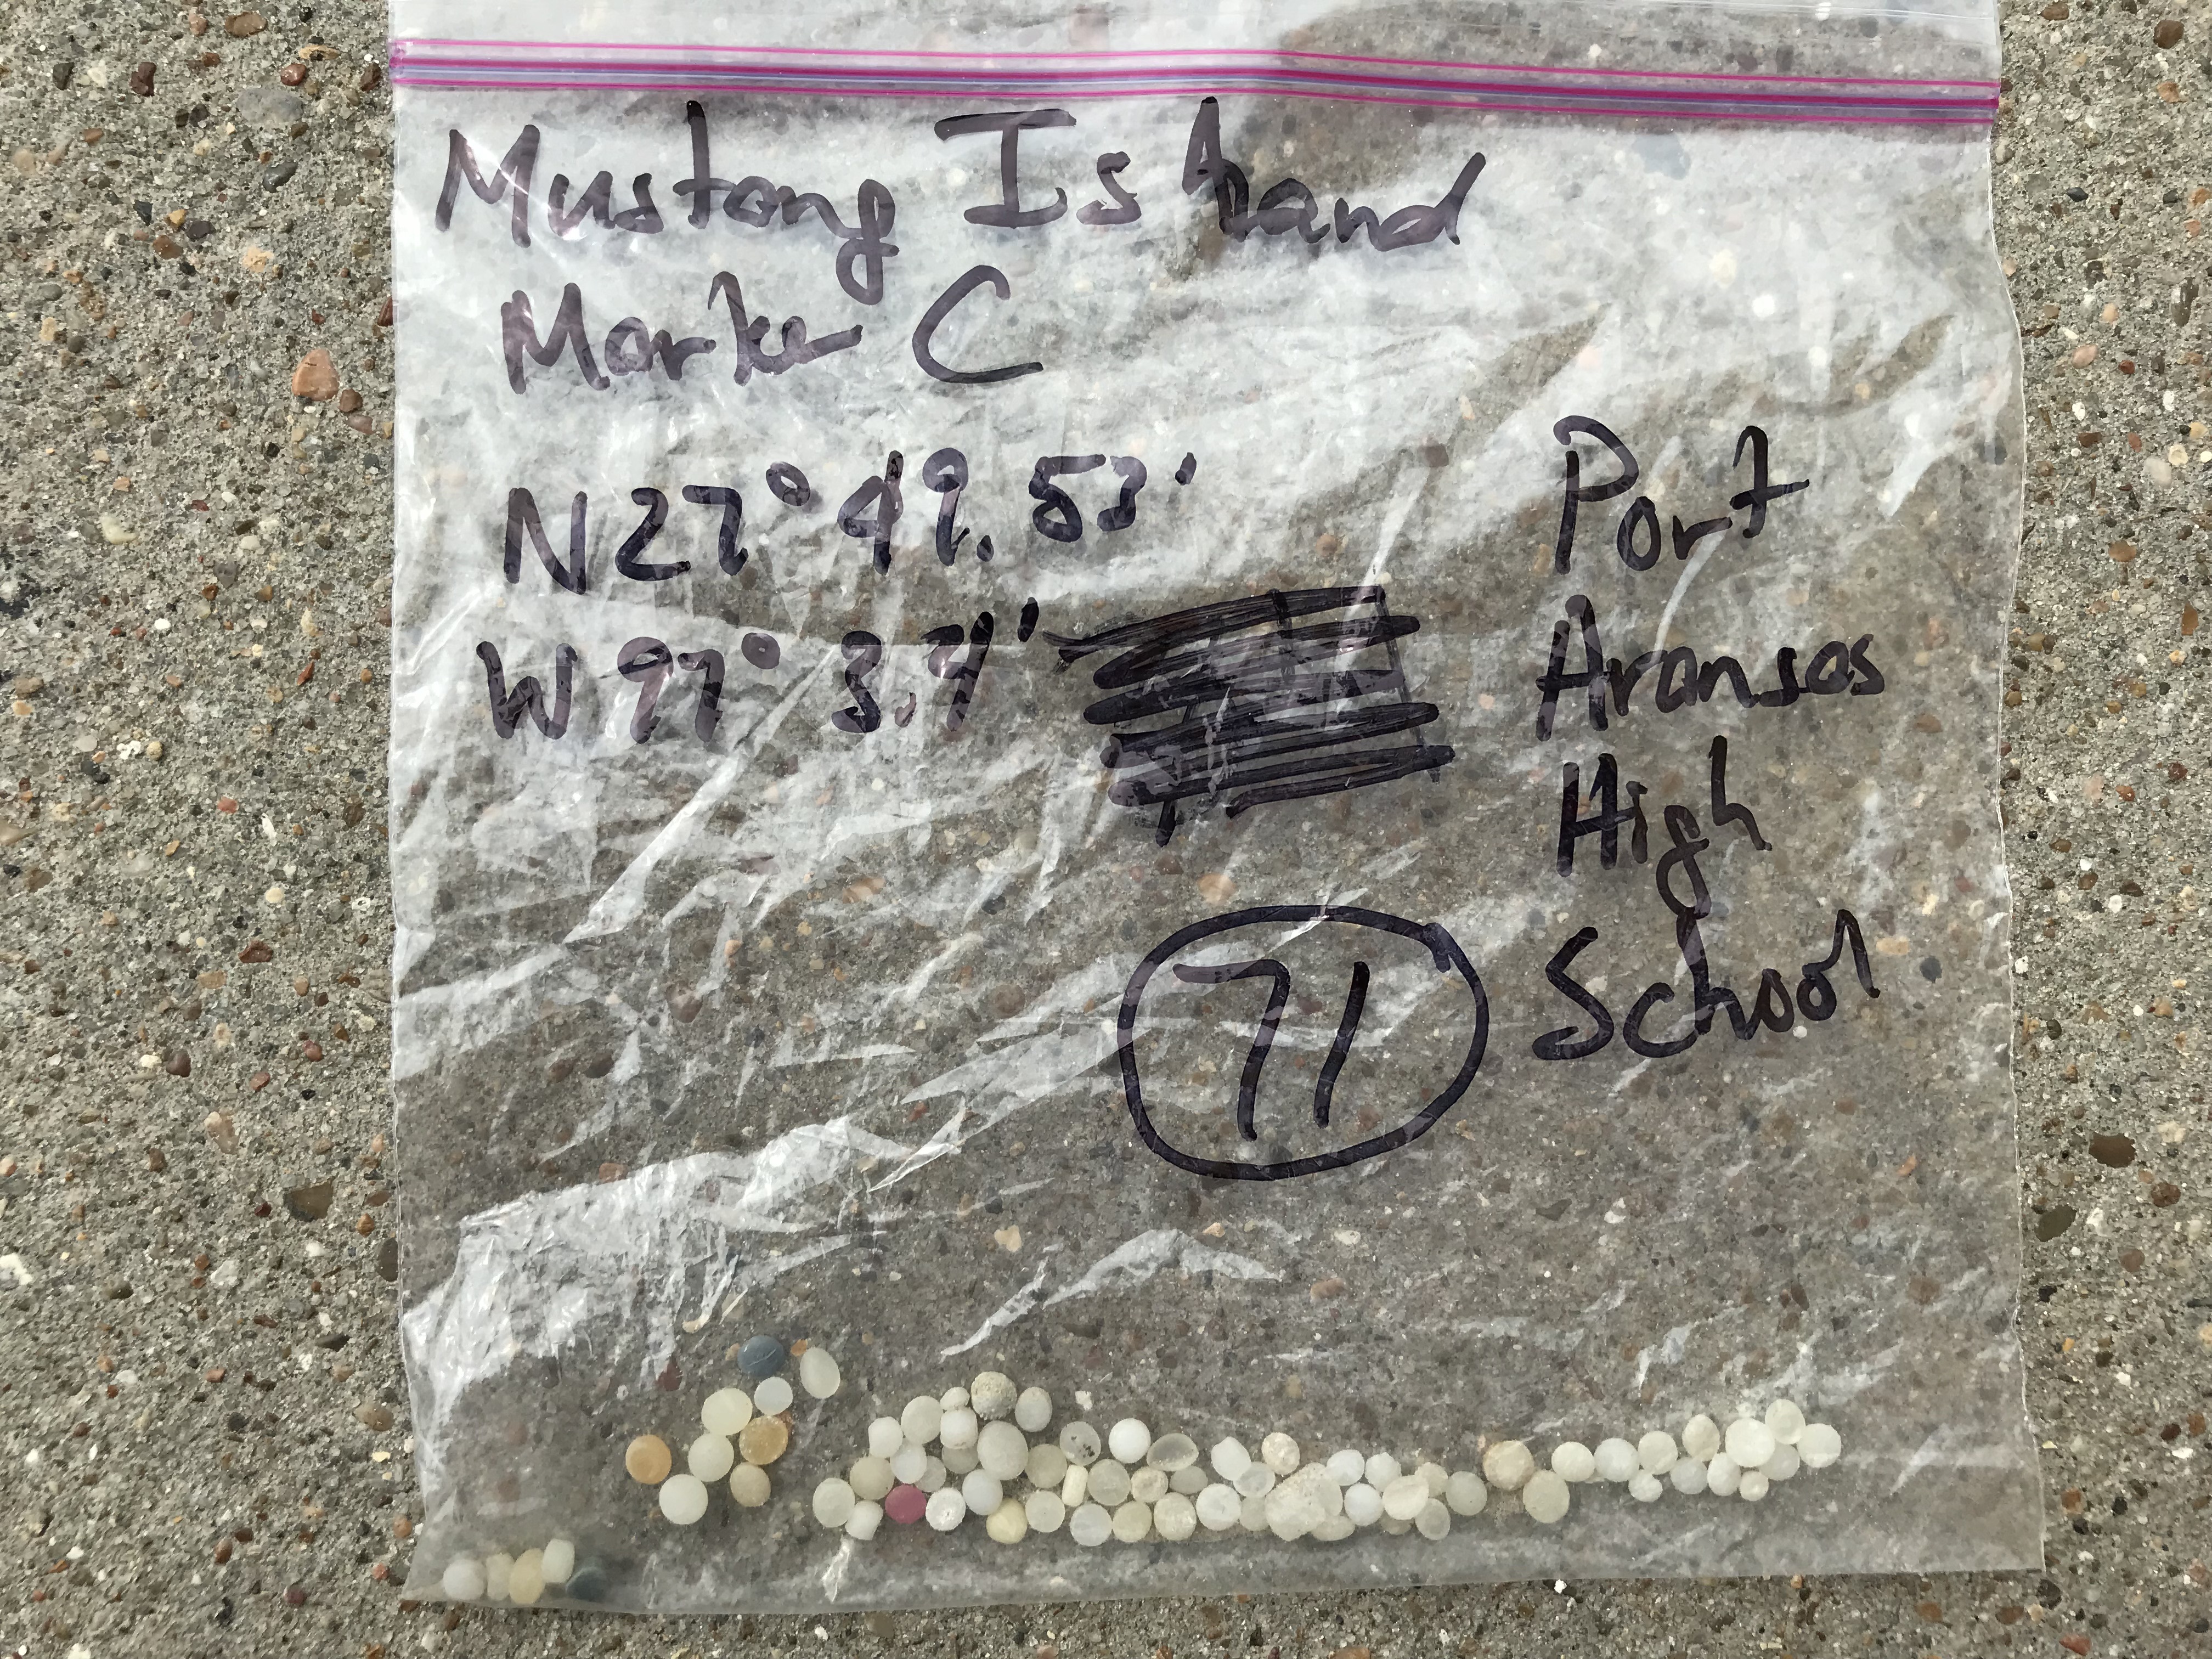 Mustang Island
Marker C
N27° 49.53'
W 97° 3.4'
Port
Aransas
High
School
71